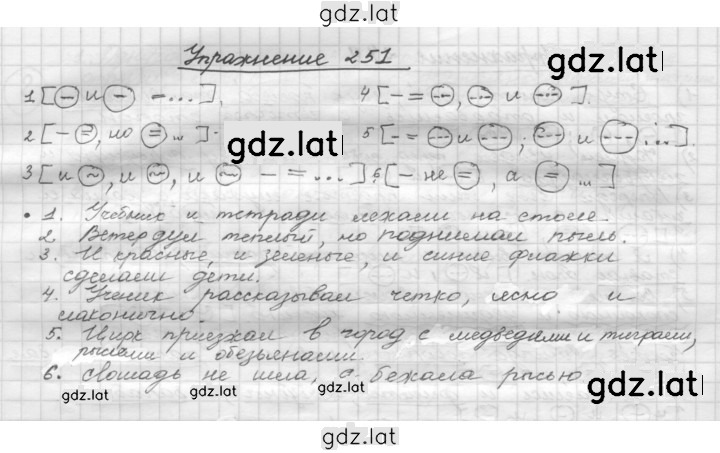 gdz.latl
Упражнение 251
gdz.latl
1 [– и – =...].
4 [– = –·–, –·– и –·–].
2 [– =, но = ...].
gdz.latl
5 [– = --- и ---; --- и --- ...].
3 [и ~, и ~, и ~ – = ...]
6 [– не =, а = ...]
1. Учебник и тетради лежали на столе.
2. Ветер дул теплый, но поднимал пыль.
3. И красные, и зеленые, и синие флажки
сделали дети.
4. Ученик рассказывал четко, ясно и
лаконично.
5. Цирк приезжал в город с медведями и тиграми,
рысями и обезьянами.
6. Лошадь не шла, а бежала рысью
gdz.lat
gdz.lat
gdz.lat
gdz.latl
gdz.lat